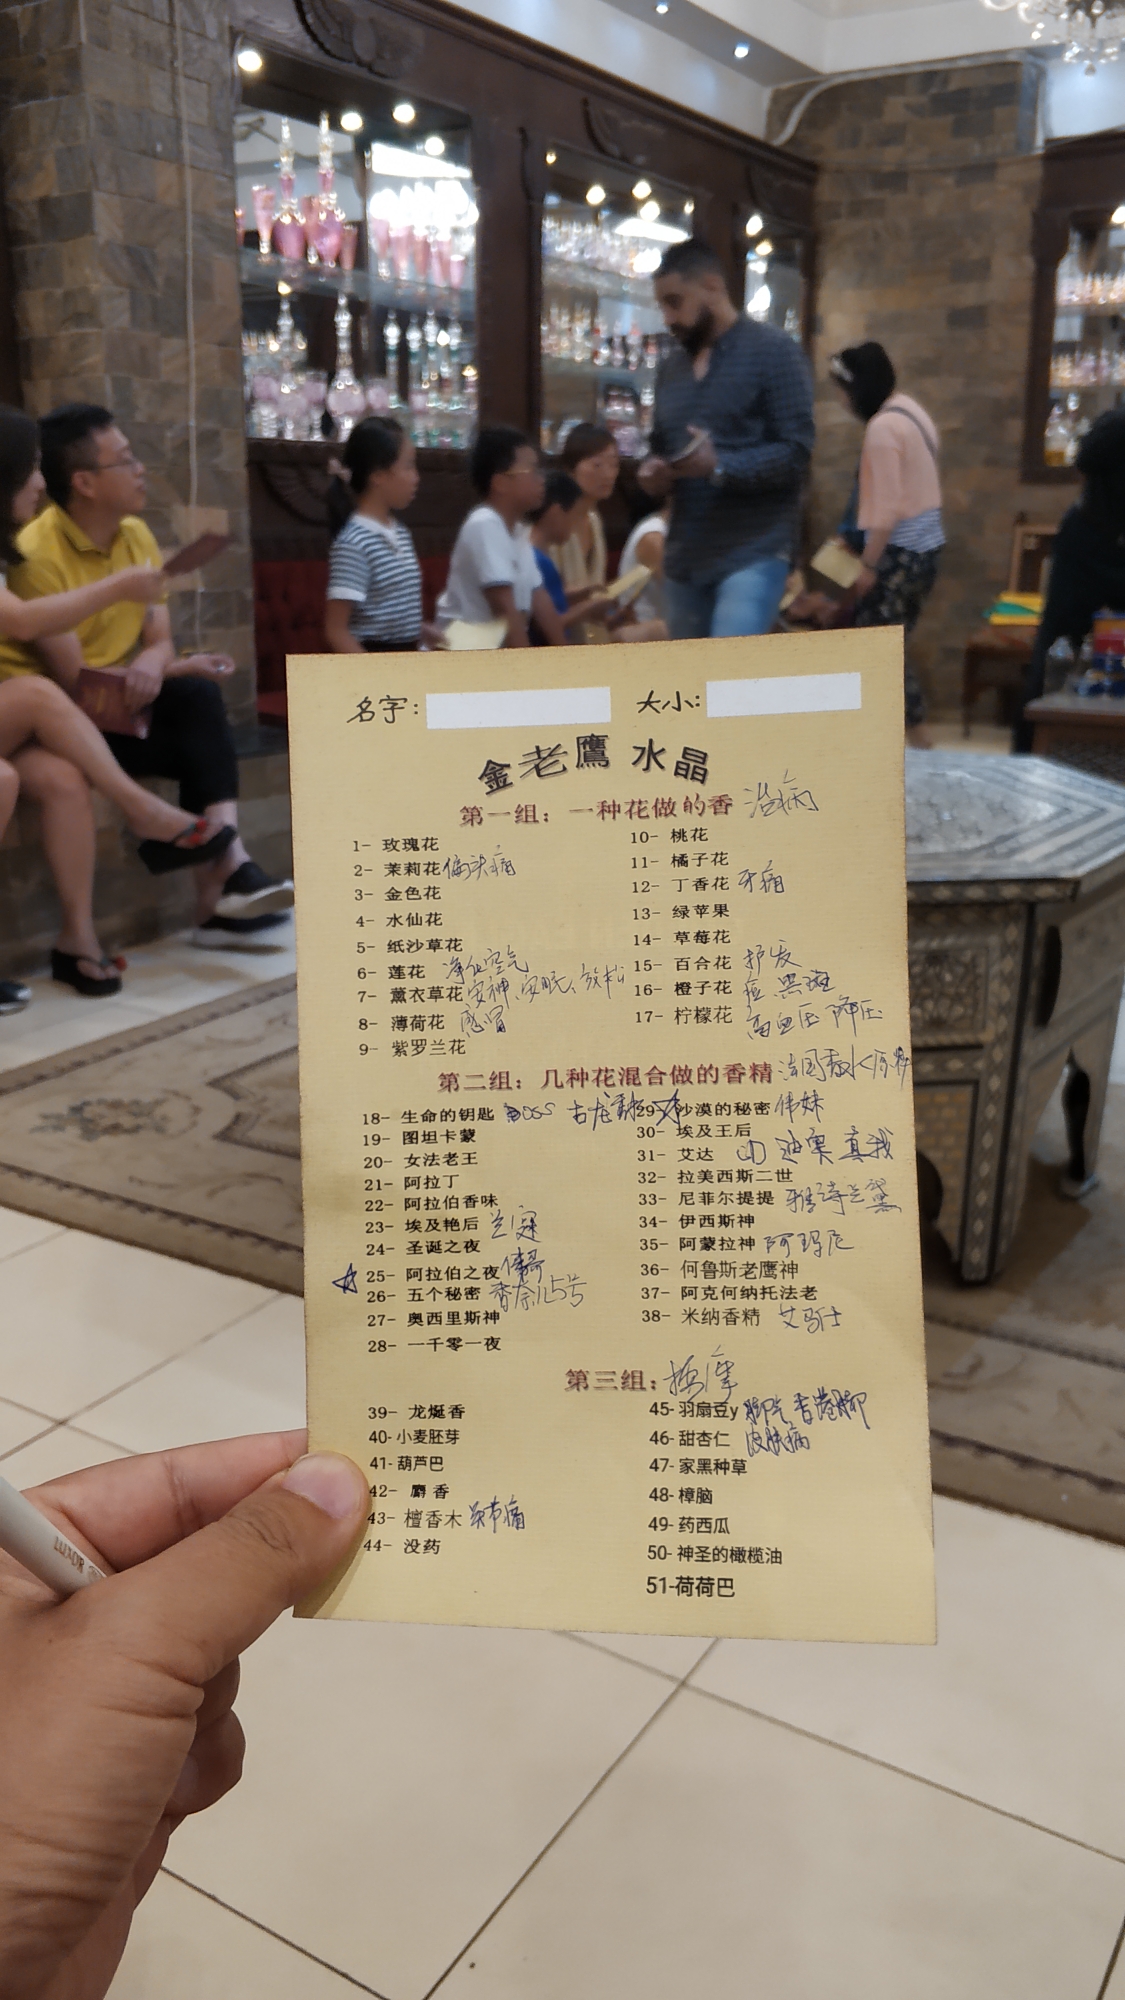 名字: 大小:
金老鷹 水晶
第一组: 一种花做的香 治病
1- 玫瑰花
2- 茉莉花 偏头痛
3- 金色花
4- 水仙花
5- 纸沙草花
6- 莲花 净化空气
7- 薰衣草花 安神、安眠、放松
8- 薄荷花 感冒
9- 紫罗兰花
10- 桃花
11- 橘子花
12- 丁香花 牙痛
13- 绿苹果
14- 草莓花
15- 百合花 护发
16- 橙子花 痘 黑斑
17- 柠檬花 高血压 降压
第二组: 几种花混合做的香精 法国香水原料
18- 生命的钥匙 BOSS 古龙香水
19- 图坦卡蒙
20- 女法老王
21- 阿拉丁
22- 阿拉伯香味
23- 埃及艳后 兰寇
24- 圣诞之夜
☆ 25- 阿拉伯之夜 伟哥
26- 五个秘密 香奈儿5号
27- 奥西里斯神
28- 一千零一夜
29- 沙漠的秘密 伟妹
30- 埃及王后
31- 艾达 迪奥 真我
32- 拉美西斯二世
33- 尼菲尔提提 雅诗兰黛
34- 伊西斯神
35- 阿蒙拉神 阿玛尼
36- 何鲁斯老鹰神
37- 阿克何纳托法老
38- 米纳香精 艾马仕
第三组: 按摩
39- 龙涎香
40- 小麦胚芽
41- 葫芦巴
42- 麝香
43- 檀香木 关节痛
44- 没药
45- 羽扇豆y 脚气 香港脚
46- 甜杏仁 皮肤病
47- 家黑种草
48- 樟脑
49- 药西瓜
50- 神圣的橄榄油
51-荷荷巴
LUXOR